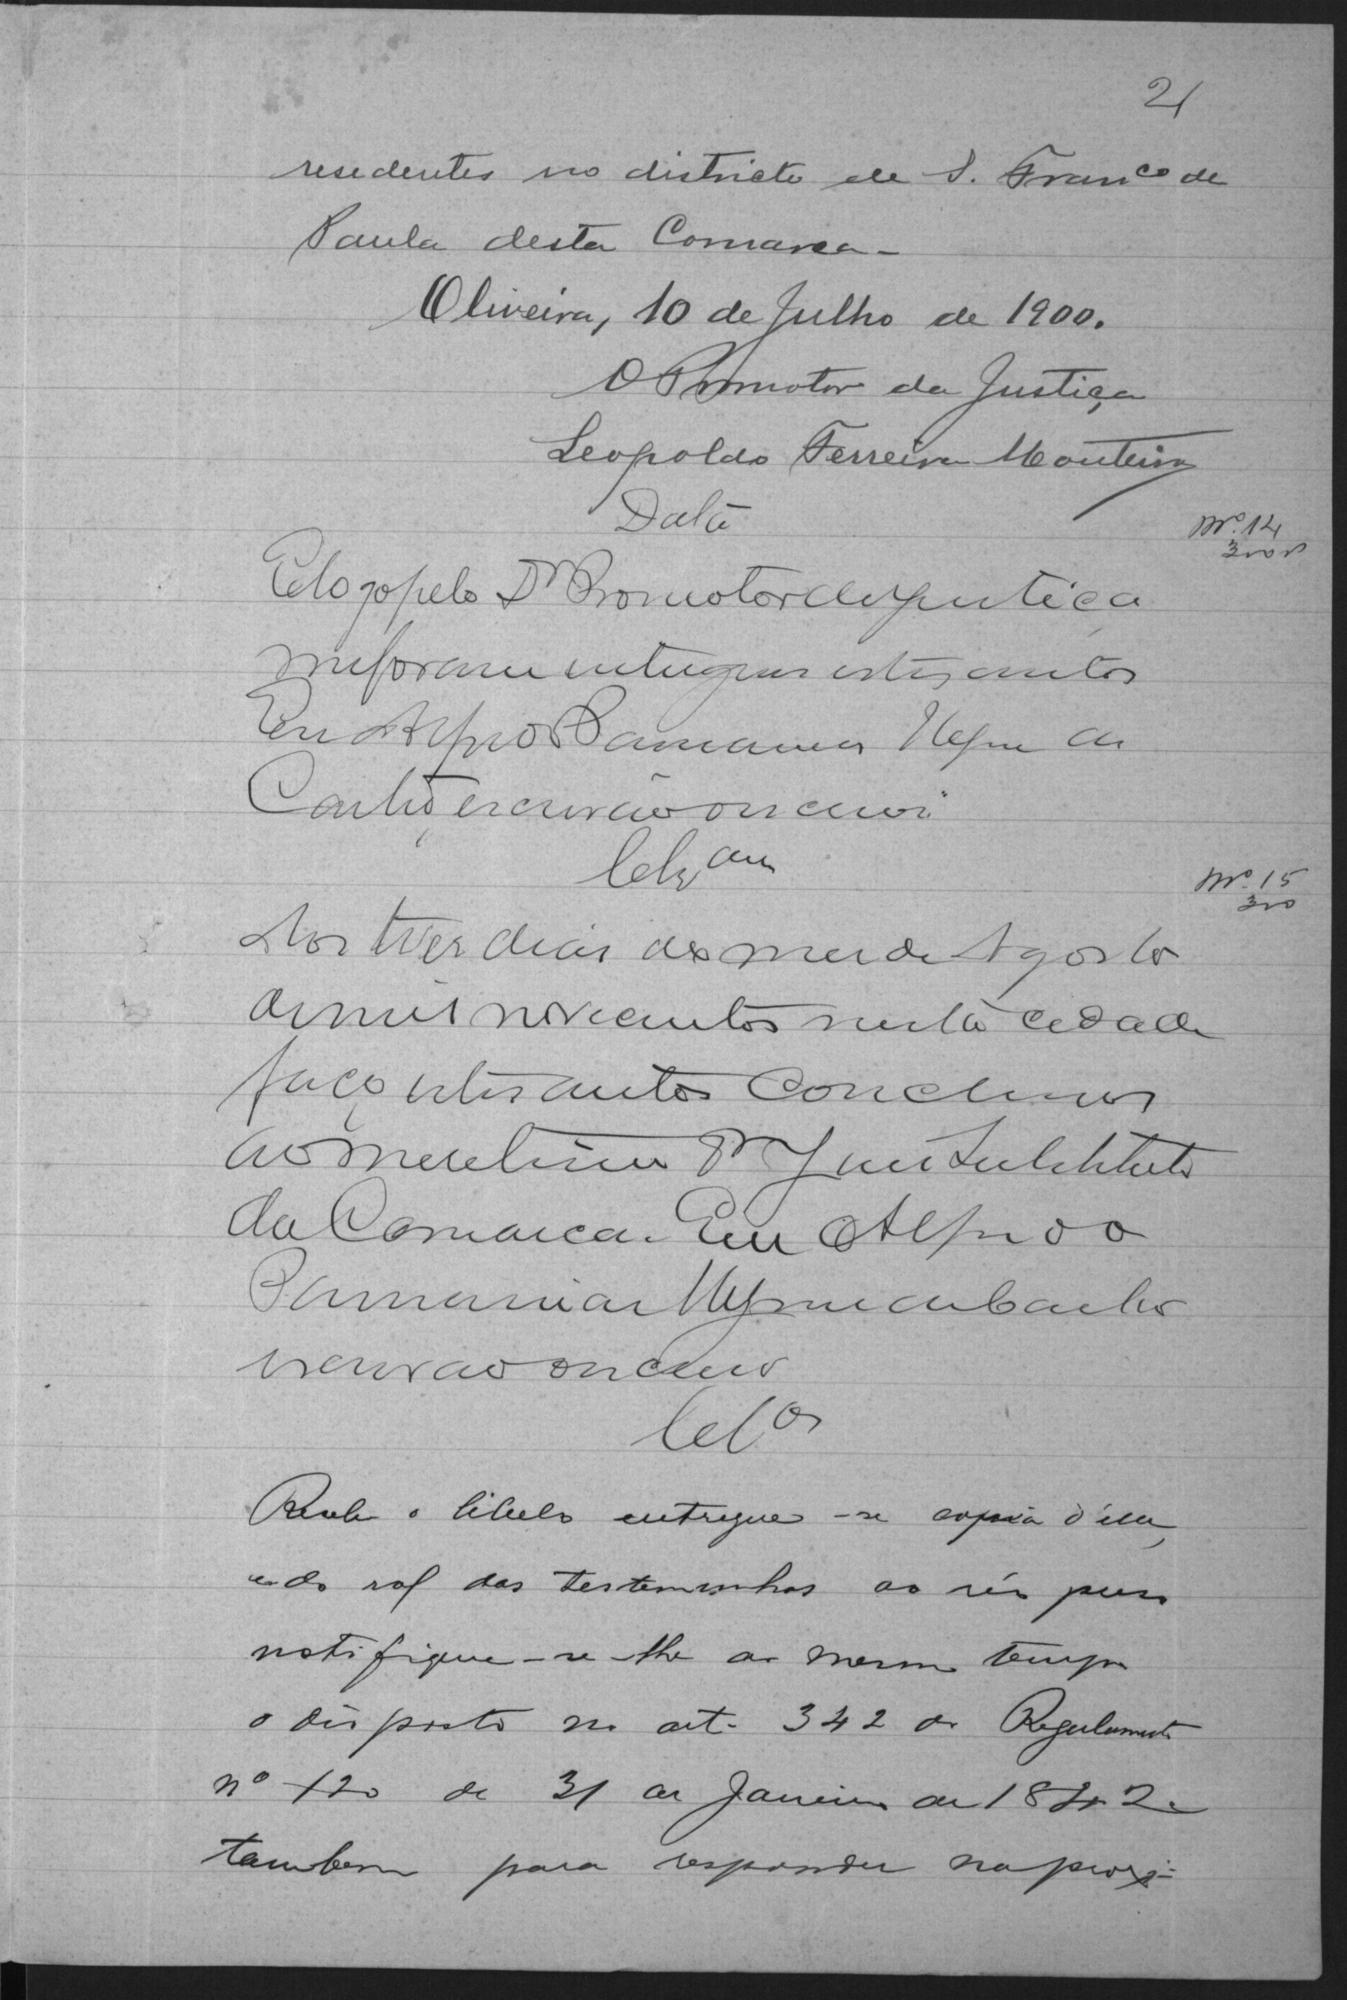 21
resedentes no districto de S. Franco de
Paula desta Comarca-
Oliveira, 10 de Julho de 1900.
O Promotor da Justiça
Leopoldo Ferreira Monteiro
Data
E logo pelo Dr Promotor de justiça
me foram entregues estes autos
Eu
Castro escrivão o escrevi
No. 14
300 rs
Clzam
No. 15
300
Aos tres dias do mes de Agosto
de mil novecentos nesta cidade
faço estes autos conclusos
ao meretissimo Dr Juis Substituto
da Comarca. Eu
escrivão o escrevi
Clos
Recebo o libello entregue-se copia d'elle,
e do rol das testemunhas ao réo preso
notifique-se-lhe ao mesmo tempo
o disposto no art. 342 do Regulamento
nº 120 de 31 de Janeiro de 1842 e
tambem para responder na proxi-